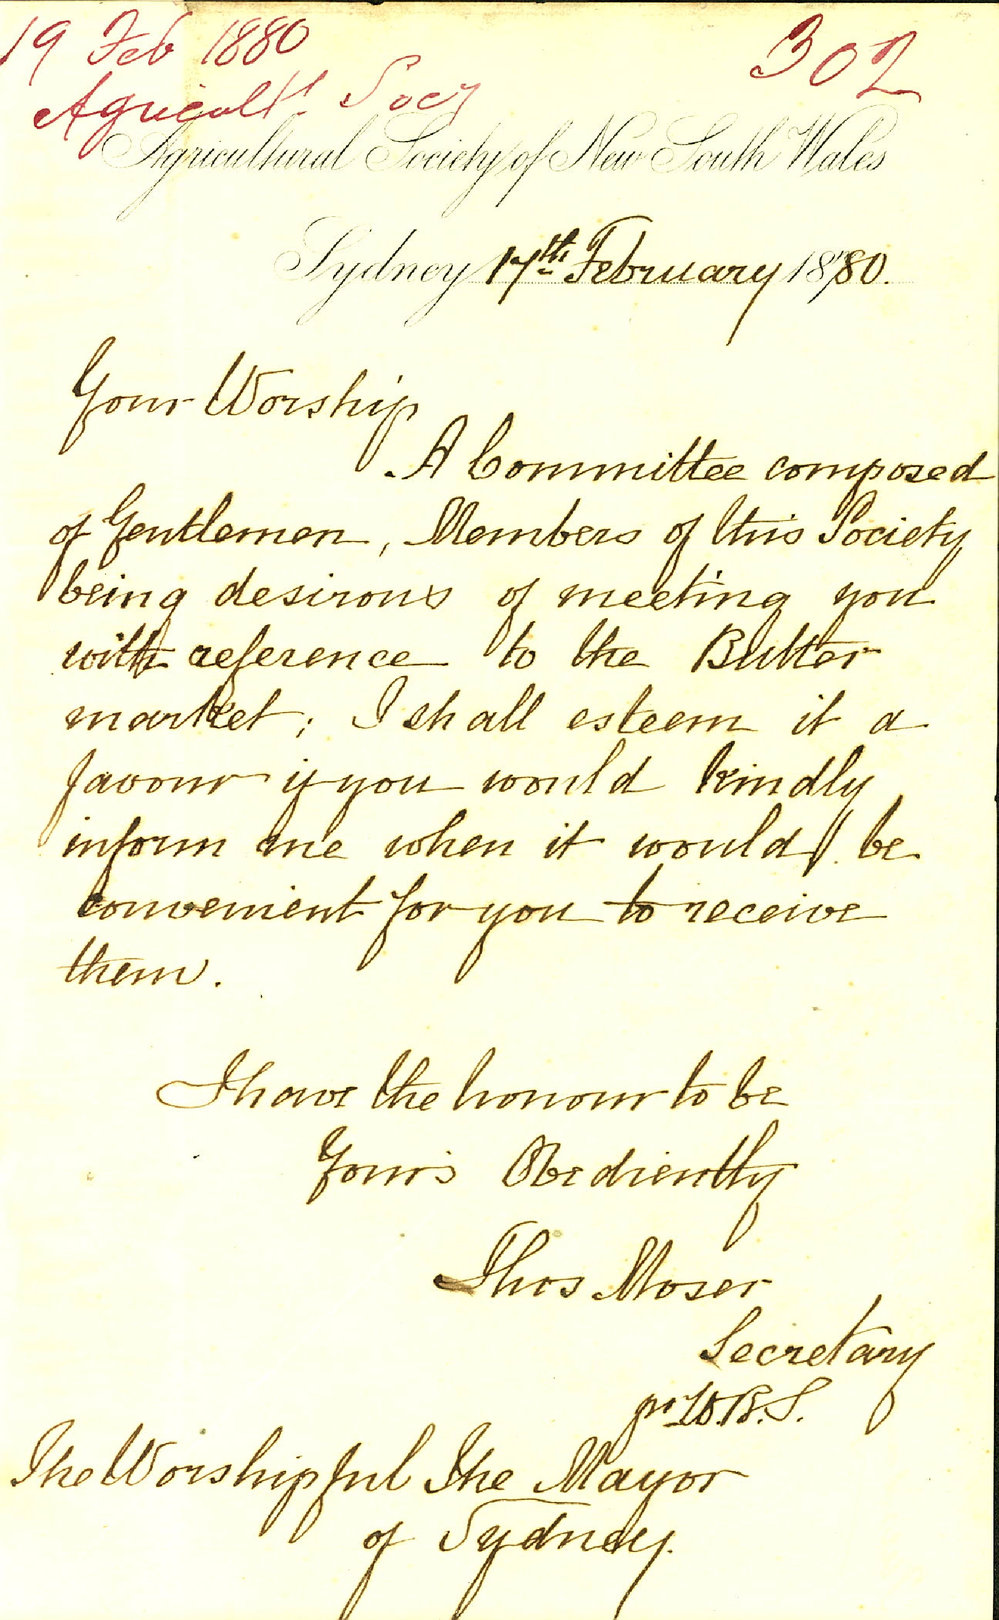 19 Feb 1880
302
Agricult'l Socy
Agricultural Society of New South Wales
Sydney 17th February 1880.
Your Worship
A Committee composed
of Gentlemen, Members of this Society
being desirous of meeting you
with reference to the Butter
market; I shall esteem it a
favour if you would kindly
inform me when it would be
convenient for you to receive
them.
I have the honour to be
Your's Obediently
Thos Moser
Secretary
pr W.B.S.
The Worshipful The Mayor
of Sydney.